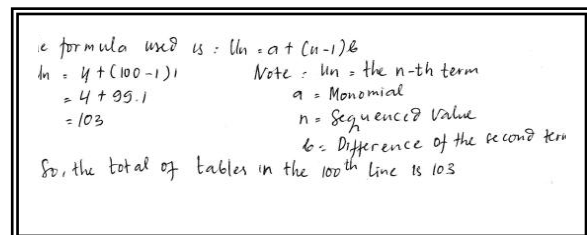 e formula used is : Un = a + (n-1)b
Un = 4 + (100-1)1 Note : Un = the n-th term
= 4 + 99.1 a = Monomial
= 103 n = Sequenced Value
b = Difference of the second term
So, the total of tables in the 100th line is 103